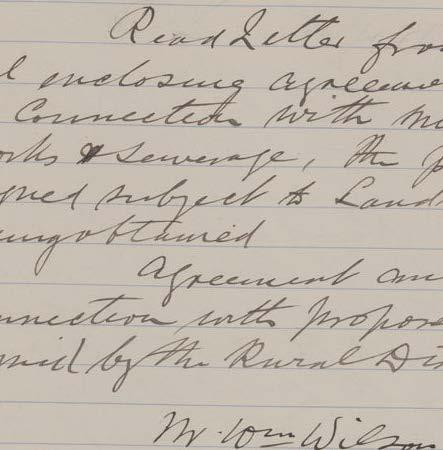 Read Letter from
l enclosing agreeme
Connection with M
orks & Sewerage, the p
gned subject to Land
ung obtained
Agreement
nnection with propose
by the Rural Dis
Mr. Wm Wilson